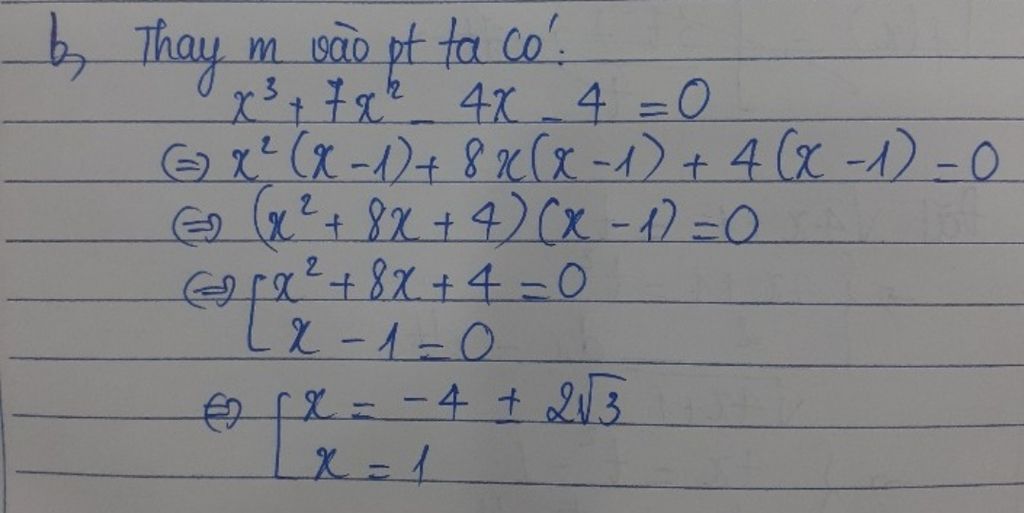 b, Thay m vào pt ta có:
x³ + 7x² - 4x - 4 = 0
⇔ x² (x - 1) + 8x(x - 1) + 4(x - 1) = 0
⇔ (x² + 8x + 4)(x - 1) = 0
⇔ [ x² + 8x + 4 = 0
x - 1 = 0
⇔ [ x = -4 ± 2√3
x = 1